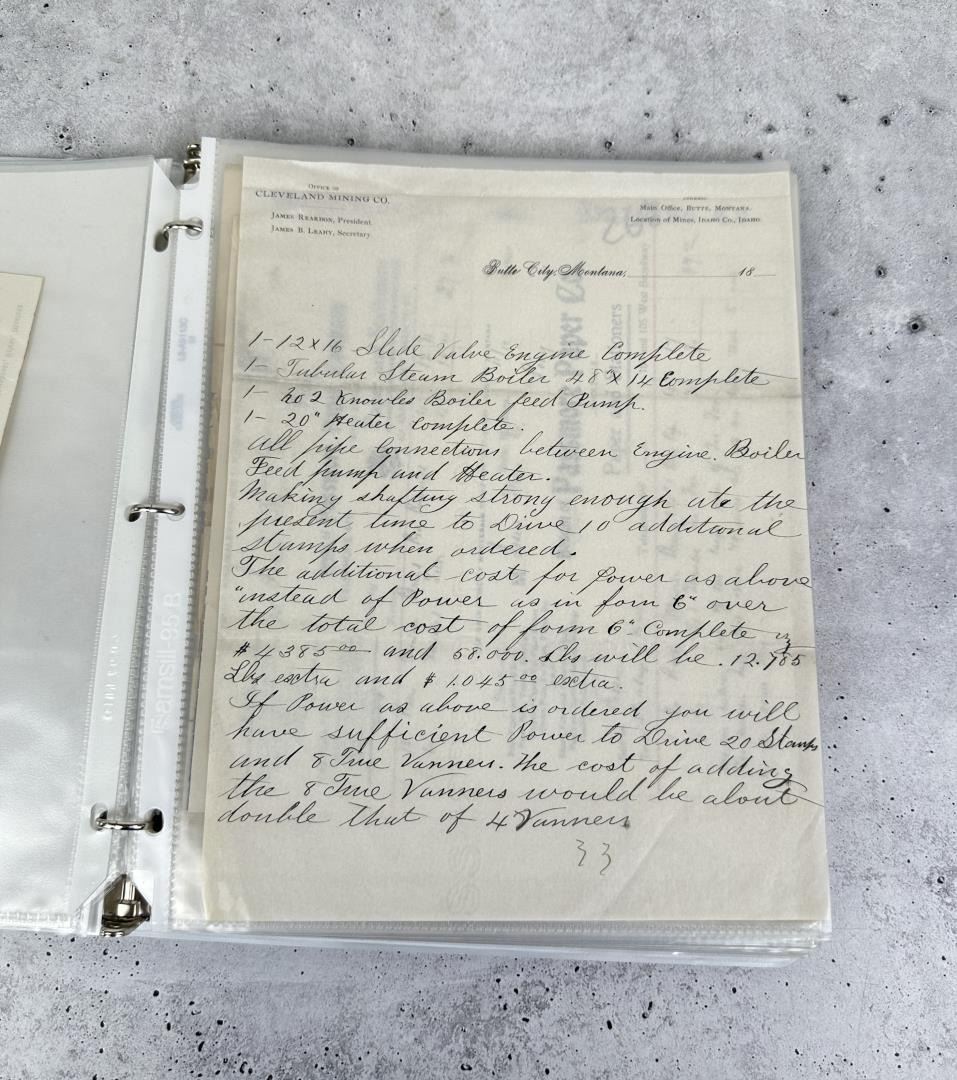 OFFICE OF
CLEVELAND MINING CO.
JAMES REARDON, President.
JAMES B. LEAHY, Secretary.
Main Office, BUTTE, MONTANA.
Location of Mines, IDAHO CO., IDAHO.
Butte City, Montana, 18
1 - 12 x 16 Slide Valve Engine Complete
1 - Tubular Steam Boiler 48" x 14 Complete
1 - No 2 Knowles Boiler feed Pump.
1 - 20" Heater complete.
All pipe connections between Engine. Boiler
Feed pump and Heater.
Making shafting strong enough ate the
present time to Drive 10 additional
stamps when ordered.
The additional cost for Power as above
"instead of Power as in form 6" over
the total cost of form 6" Complete is
$4385 00 and 58.000. Lbs will be . 12.785
Lbs extra and $1.045 00 extra.
If Power as above is ordered you will
have sufficient Power to Drive 20 Stamps
and 8 True Vanners. The cost of adding
the 8 True Vanners would be about
double that of 4 Vanners
33
Samsill-95 B